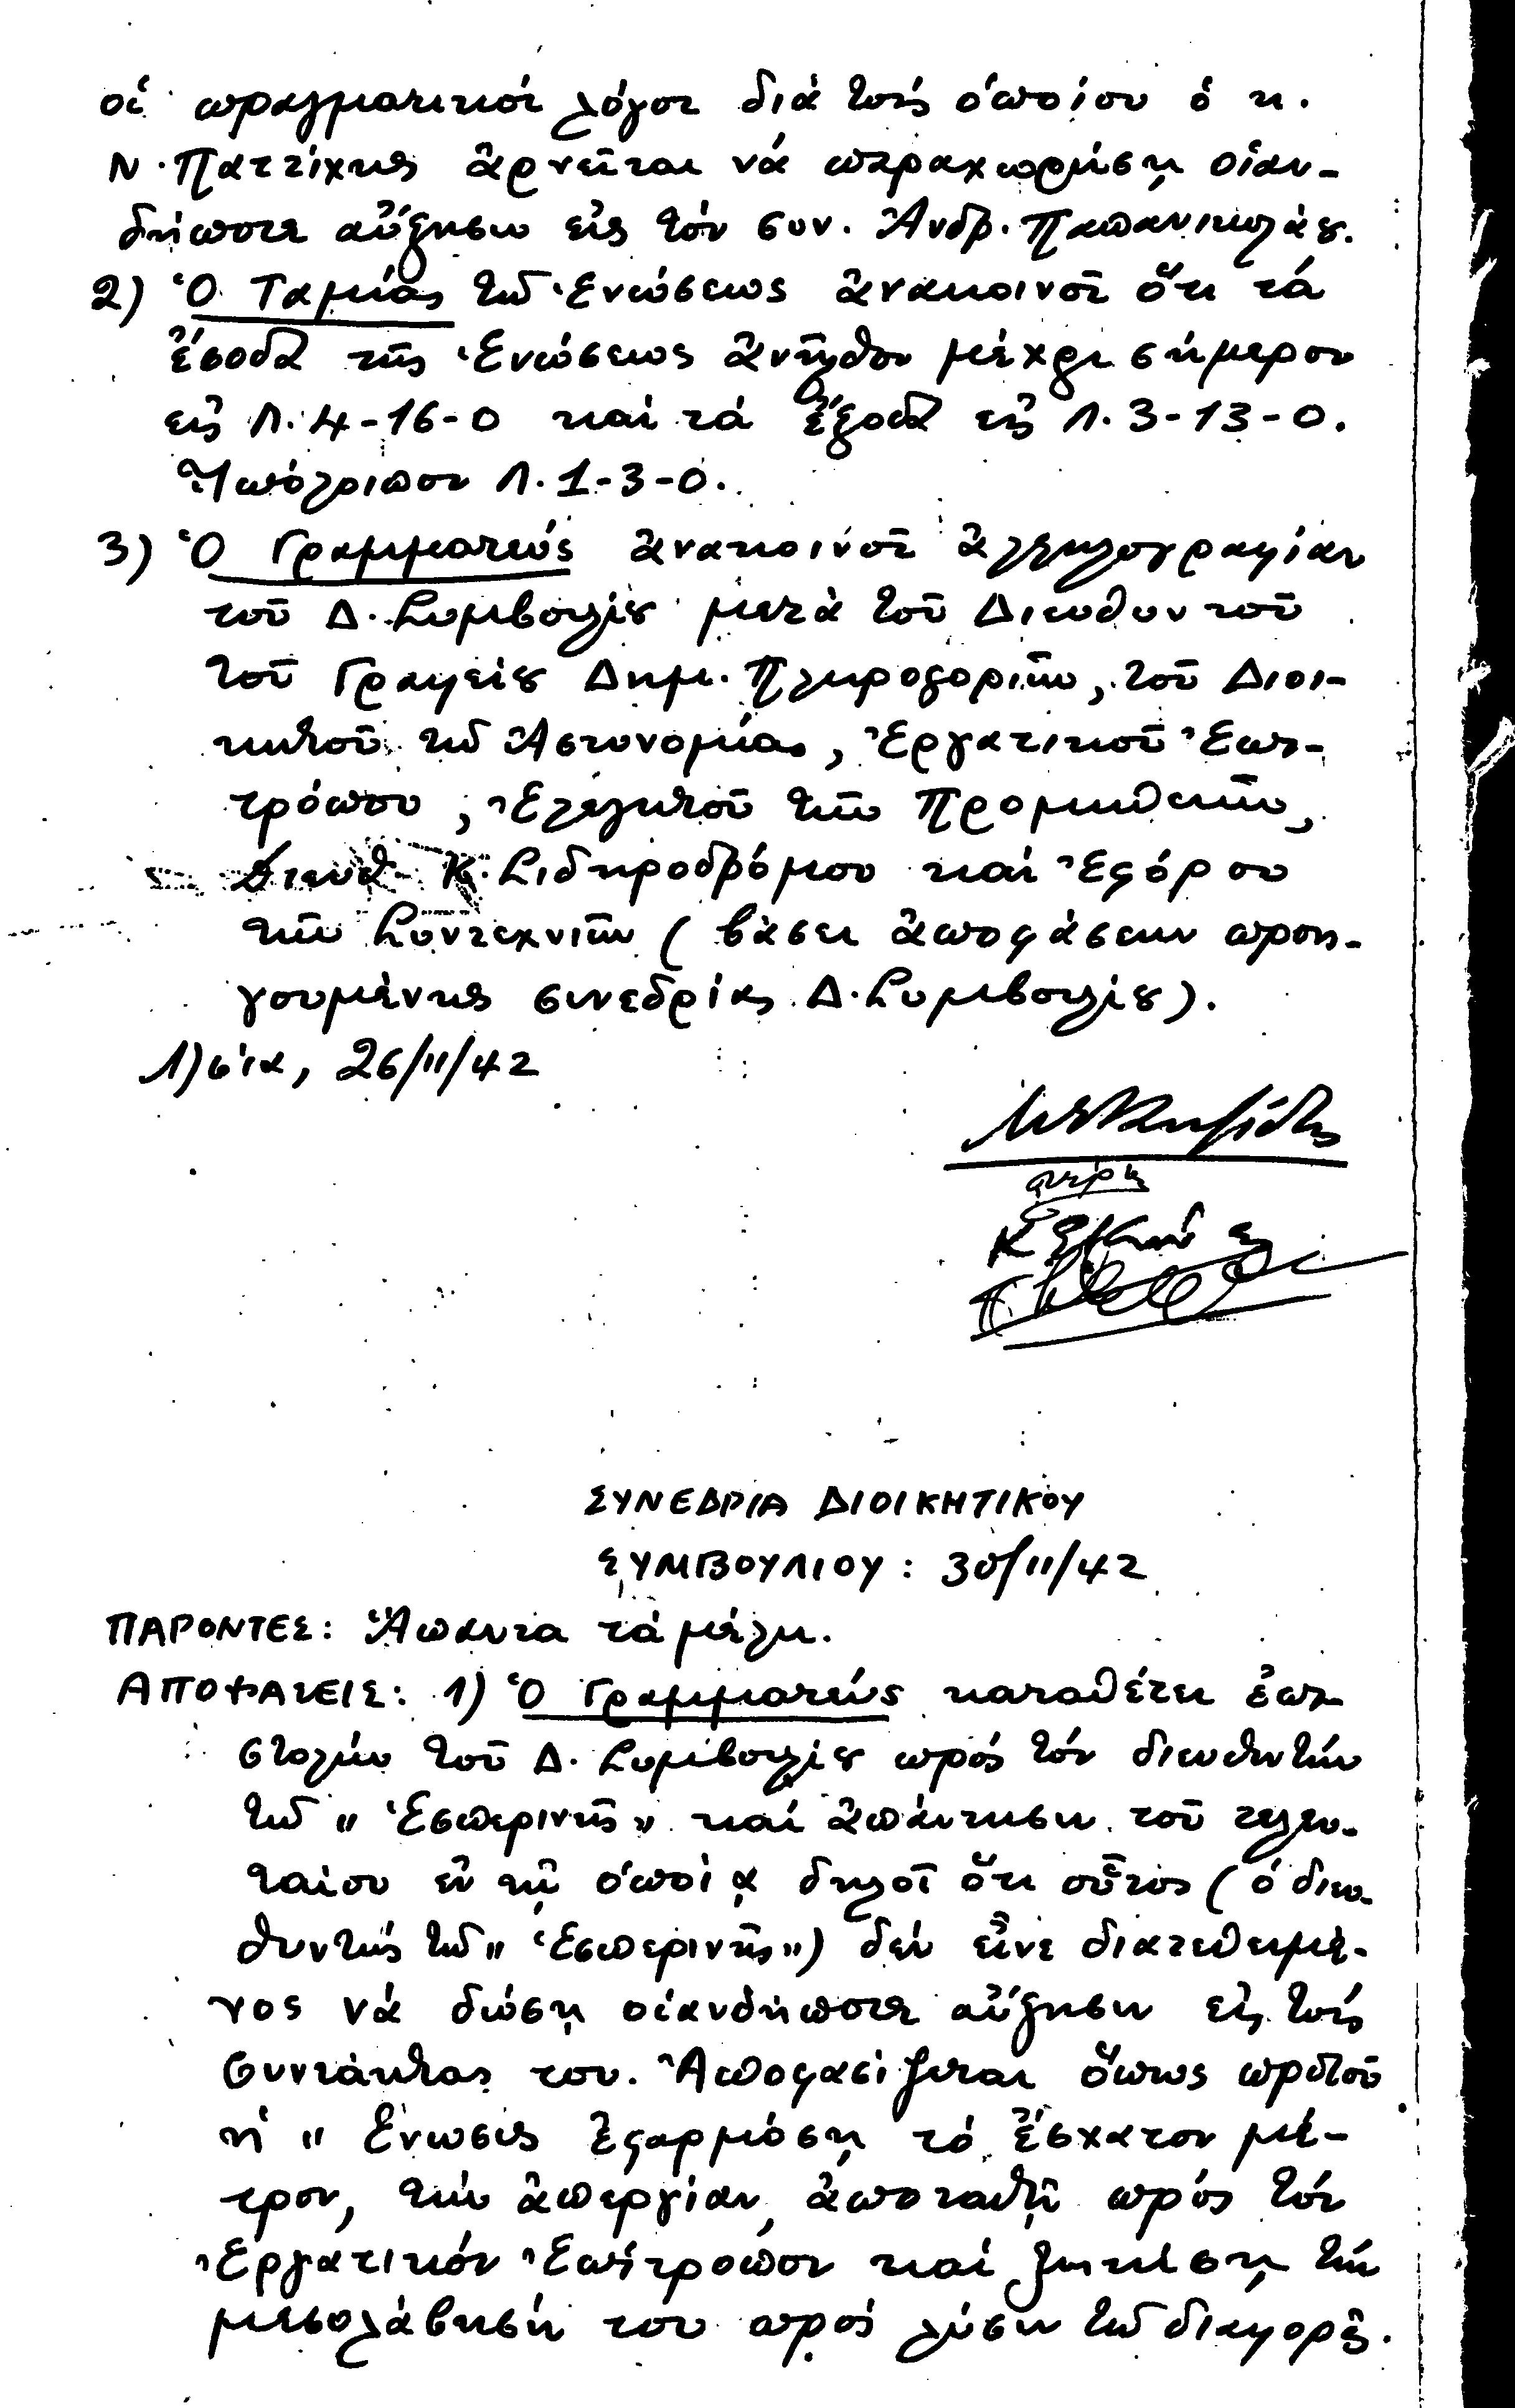 οἱ πραγματικοί λόγοι διά τούς ὁποίου ὁ κ.
Ν. Παττίχης ἀρνεῖται νά παραχωρήσῃ οἱαν-
δήποτε αὔξησιν εἰς τόν συν. Ἀνδρ. Παπανικολάου.
2) Ὁ Ταμίας τῆς Ἑνώσεως ἀνακοινοῖ ὅτι τά
ἔσοδα τῆς Ἑνώσεως ἀνῆλθον μέχρι σήμερον
εἰς Λ.4-16-0 καί τά ἔξοδα εἰς Λ.3-13-0.
Ὑπόλοιπον Λ.1-3-0.
3) Ὁ Γραμματεύς ἀνακοινοῖ ἀλληλογραφίαν
τοῦ Δ. Συμβουλίου μετά τοῦ Διευθυντοῦ
τοῦ Γραφείου Δημ. Πληροφοριῶν, τοῦ Διοι-
κητοῦ τῆς Ἀστυνομίας, Ἐργατικοῦ Ἐπι-
τρόπου, Ἐλεγκτοῦ τῶν Προμηθειῶν,
Διευθ. Κ. Σιδηροδρόμου καί Ἐφόρου
τῶν Συντεχνιῶν (βάσει ἀποφάσεων προη-
γουμένης συνεδρίας Δ. Συμβουλίου).
Λ)σία, 26/11/42
ΣΥΝΕΔΡΙΑ ΔΙΟΙΚΗΤΙΚΟΥ
ΣΥΜΒΟΥΛΙΟΥ: 30/11/42
ΠΑΡΟΝΤΕΣ: Ἅπαντα τά μέλη.
ΑΠΟΦΑΣΕΙΣ: 1) Ὁ Γραμματεύς καταθέτει ἐπι-
στολήν τοῦ Δ. Συμβουλίου πρός τόν διευθυντήν
τῆς "Ἑσπερινῆς" καί ἀπάντησιν τοῦ τελευ-
ταίου ἐν τῇ ὁποίᾳ δηλοῖ ὅτι οὗτος (ὁ διευ-
θυντής τῆς "Ἑσπερινῆς") δέν εἶνε διατεθειμέ-
νος νά δώσῃ οἱανδήποτε αὔξησιν εἰς τούς
συντάκτας του. Ἀποφασίζεται ὅπως προτοῦ
ἡ "Ἕνωσις ἐφαρμόσῃ τό ἔσχατον μέ-
τρον, τήν ἀπεργίαν, ἀποταθῇ πρός τόν
Ἐργατικόν Ἐπίτροπον καί ζητήσῃ τήν
μεσολάβησίν του πρός λύσιν τῆς διαφορᾶς.